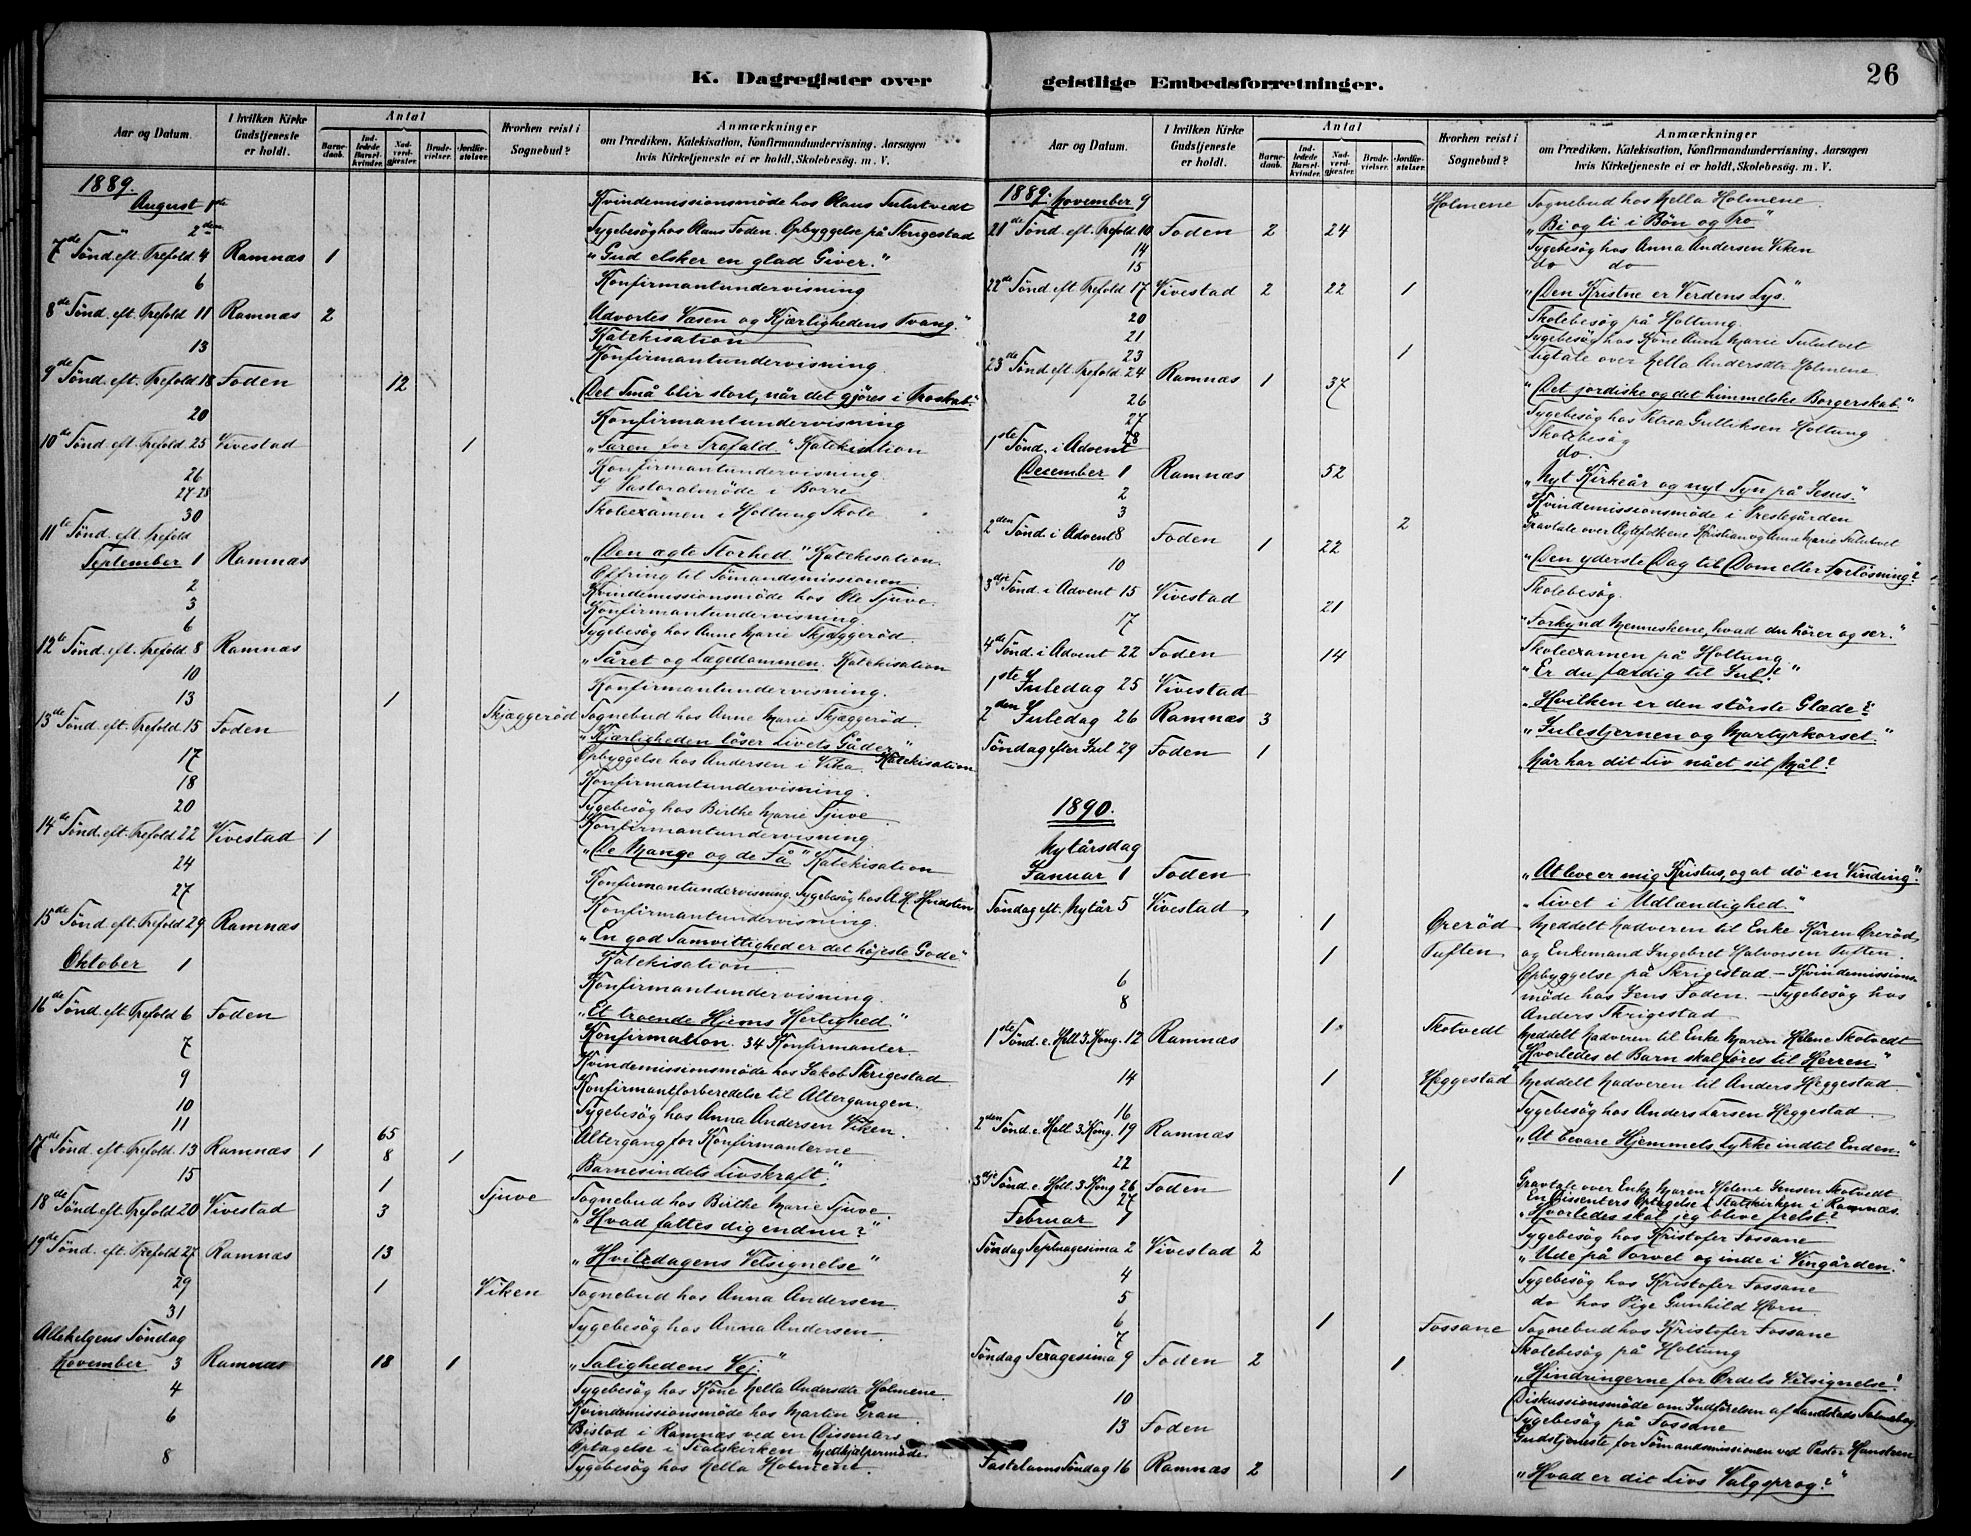 K. Dagregister over geistlige Embedsforretninger.
26
Aar og Datum.
I hvilken Kirke Gudstjeneste er holdt.
Antal
Barnedaab.
Indledede Barselkvinder.
Nadverdgjester.
Brudevielser.
Jordfæstelser.
Hvorhen reist i Sognebud?
Anmærkninger
om Prædiken, Katekisation, Konfirmandundervisning, Aarsagen
hvis Kirketjeneste ei er holdt, Skolebesög. m. V.
1889.
August 1ste Kvindemissionsmöde hos Klaus Sulutvedt
2den Sygebesög hos Klaus Foden. Opbyggelse på Skrigestad
7de Sönd. eft. Trefold. 4 Ramnæs 1 „Gud elsker en glad Giver."
6 Konfirmantundervisning
8de Sönd. eft. Trefold 11 Ramnæs 2 Udvortes Væsen og Kjærlighedens Tvang."
Katekisation
13 Konfirmantundervisning.
9de Sönd. eft. Trefold 18 Foden 12 „Det Små blir stort, når det gjöres i Troskab."
20 Konfirmantundervisning
10de Sönd. eft. Trefold. 25 Vivestad 1 „Faren for Frafald." Katekisation
26 Konfirmantundervisning.
27-28 I Pastoralmöde i Borre
30 Skoleexamen i Holtung Skole
11te Sönd. eft. Trefold
September 1 Ramnæs „Den ægte Storhed." Katekisation.
Offring til Sömandsmissionen
2 Kvindemissionsmöde hos Ole Tjuve.
3 Konfirmantundervisning.
6 Sygebesög hos Anne Marie Skjæggeröd.
12te Sönd. eft. Trefold. 8 Ramnæs „Såret og Lægedommen. Katekisation
10 Konfirmantundervisning.
13 1 Skjæggeröd Sognebud hos Anne Marie Skjæggeröd.
13de Sönd. eft. Trefold 15 Foden „Kjærligheden löser Livets Gåder." Katekisation
Opbyggelse hos Andersen i Vika.
17 Konfirmantundervisning.
18 Sygebesög hos Birthe Marie Tjuve.
20 Konfirmantundervisning.
14de Sönd. eft. Trefold. 22 Vivestad 1 „De Mange og de Få." Katekisation
24 Konfirmantundervisning. Sygebesög hos A. H. Hvidsten
27 Konfirmantundervisning.
15de Sönd. eft. Trefold 29 Ramnæs „En god Samvittighed er det höjeste Gode"
Katekisation
Oktober 1 Konfirmantundervisning.
16de Sönd. eft. Trefold 6 Foden „Et troende Hjems Herlighed."
Konfirmation. 34 Konfirmanter.
7 Kvindemissionsmöde hos Jakob Skrigestad
9 Konfirmantforberedelse til Altergangen.
10 Sygebesög hos Anna Andersen Viken.
11 65 Altergang for Konfirmanterne
17de Sönd. eft. Trefold. 13 Ramnæs 1 8 1 „Barnesindets Livskraft".
15 1 Tjuve Sognebud hos Birthe Marie Tjuve.
18de Sönd. eft. Trefold 20 Vivestad 3 „Hvad fattes dig endnu?"
19de Sönd. eft. Trefold 27 Ramnæs 13 „Hviledagens Velsignelse"
29 1 Viken Sognebud hos Anna Andersen.
31 Sygebesög hos Anna Andersen.
Allehelgens Söndag
November 3 Ramnæs 18 1 „Salighedens Vej."
4 Sygebesög hos Kone Nella Andersdtr Holmene.
6 Kvindemissionsmöde hos Martin Gran.
Bistod i Ramnæs ved en Dissenters
Optagelse i Statskirken. Medhjælpermöde.
8 Sygebesög hos Nella Holmene.
Aar og Datum.
I hvilken Kirke Gudstjeneste er holdt.
Antal
Barnedaab.
Indledede Barselkvinder.
Nadverdgjester.
Brudevielser.
Jordfæstelser.
Hvorhen reist i Sognebud?
Anmærkninger
om Prædiken, Katekisation, Konfirmandundervisning, Aarsagen
hvis Kirketjeneste ei er holdt, Skolebesög. m. V.
1889. November 9 Holmene Sognebud hos Nella Holmene.
21de Sönd. eft. Trefold. 10 Foden 2 24 „Bi og li i Bön og Tro"
14 Sygebesög hos Anna Andersen Viken
15 do do
22de Sönd. eft. Trefold 17 Vivestad 2 22 1 „Den Kristne er Verdens Lys."
20 Skolebesög på Holtung.
21 Sygebesög hos Kone Anne Marie Sulutvet
23 1 Ligtale over Nella Andersdtr Holmene.
23de Sönd. eft. Trefold 24 Ramnæs 1 37 „Det jordiske og det himmelske Borgerskab."
26 Sygebesög hos Petrea Gulliksen Holtung
27 Skolebesög
28 do.
1ste Sönd. i Advent
December 1 Ramnæs 52 „Nyt Kirkeår og nyt Syn på Jesus."
2 Kvindemissionsmöde i Prestegården
3 2 Gravtale over Ægtefolkene Kristian og Anne Marie Sulutvet
2den Sönd. i Advent 8 Foden 1 22 „Den yderste Dag til Dom eller Forlösning?"
10 Skolebesög.
3dje Sönd. i Advent 15 Vivestad 21 „Forkynd Menneskene, hvad du hörer og ser."
17 Skoleexamen på Holtung
4de Sönd. i Advent 22 Foden 14 „Er du færdig til Jul?"
1ste Juledag 25 Vivestad „Hvilken er den störste Glæde?
2den Juledag 26 Ramnæs 3 „Julestjernen og Martyrkorset."
Söndag efter Jul 29 Foden 1 Når har dit Liv nået sit Mål?
1890.
Nytårsdag
Januar 1 Foden „At leve er mig Kristus, og at dö en Vinding".
Söndag eft. Nytår 5 Vivestad „Livet i Udlændighed."
1 Öreröd Meddelt Nadveren til Enke Karen Öreröd,
1 Tuften og Enkemand Ingebret Halvorsen Tuften.
6 Opbyggelse på Skrigestad – Kvindemissions-
8 möde hos Jens Foden. – Sygebesög hos
Anders Skrigestad
1 Skotvedt Meddelt Nadveren til Enke Maren Helene Skotvedt
1ste Sönd. e. Hell. 3. Kong. 12 Ramnæs „Hvorledes et Barn skal föres til Herren."
14 1 Heggestad Meddelt Nadveren til Anders Heggestad
16 Sygebesög hos Anders Larsen Heggestad
2den Sönd. e. Hell. 3. Kong. 19 Ramnæs „At bevare Hjemmets Lykke indtil Enden."
22 1 Gravtale over Enke Maren Helene Jensen Skotvedt.
3dje Sönd. e. Hell. 3. Kong 26 Foden En Dissenters Optagelse i Statskirken i Ramnæs.
„Hvorledes skal jeg blive frelst?
27
Februar 1 Sygebesög hos Kristofer Fossane
Söndag Septuagesima 2 Vivestad 2 „Ude på Torvet og inde i Vingården."
4 Sygebesög hos Kristofer Fossane
5 do hos Pige Gunhild Horn.
6 1 Fossane Sognebud hos Kristofer Fossane
7 Skolebesög på Holtung
Söndag Sexagesima 9 Foden 2 1 „Hindringerne for Ordets Velsignelse."
Diskussionsmöde om Indförelsen af Landstads Salmebog
10 Sygebesög på Fossane
13 Foden Gudstjeneste for Sömandsmissionen ved Pastor Hansteen
FastelavnsSöndag 16 Ramnæs 2 1 „Hvad er dit Livs Valgsprog?"